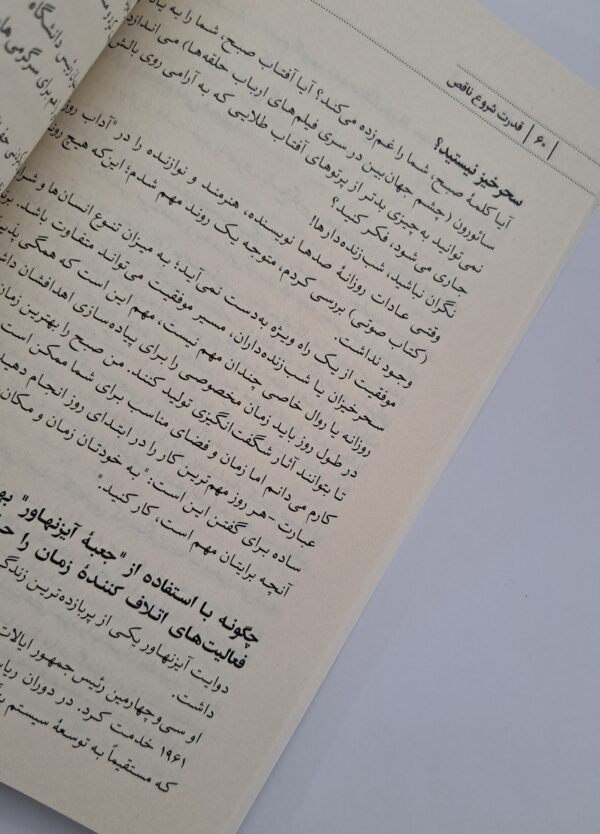 ۶۰ | قدرت شروع ناقص
سحرخیز نیستید؟
آیا کلمهٔ صبح، شما را غم‌زده می‌کند؟ آیا آفتاب صبح، شما را به یاد
سائورون (چشم جهان‌بین در سری فیلم‌های ارباب حلقه‌ها) می‌اندازد
نمی‌توانید به چیزی بدتر از پرتوهای آفتاب طلایی که به آرامی روی بالش
جاری می‌شود، فکر کنید؟
نگران نباشید، شب‌زنده‌دارها!
وقتی عادات روزانهٔ صدها نویسنده، هنرمند و نوازنده را در "آداب روز
(کتاب صوتی) بررسی کردم، متوجه یک روند مهم شدم؛ این‌که هیچ رون
وجود نداشت.
موفقیت از یک راه ویژه به‌دست نمی‌آید؛ به میزان تنوع انسان‌ها و شرا
سحرخیزان یا شب‌زنده‌داران، مسیر موفقیت می‌تواند متفاوت باشد.
روزانه یا روال خاصی چندان مهم نیست، مهم این است که همگی
در طول روز باید زمان مخصوصی را برای پیاده‌سازی اهدافشان
تا بتوانند آثار شگفت‌انگیزی تولید کنند. من صبح را بهترین زمان
کارم می‌دانم اما زمان و فضای مناسب برای شما ممکن است
عبارت -هر روز مهم‌ترین کار را در ابتدای روز انجام دهید
ساده برای گفتن این است: "به خودتان زمان و مکان
آنچه برایتان مهم است، کار کنید."
چگونه با استفاده از "جعبهٔ آیزنهاور"
فعالیت‌های اتلاف کنندهٔ زمان را
دوایت آیزنهاور یکی از پربازده‌ترین
داشت.
او سی‌وچهارمین رئیس جمهور ایالات
۱۹۶۱ خدمت کرد. در دوران
که مستقیماً به توسعهٔ سیستم